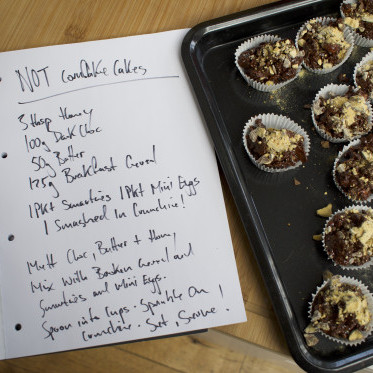 NOT Cornflake Cakes
3 tbsp Honey
100g Dark Choc
50g Butter
125g Breakfast Cereal
1 Pkt Smarties 1 Pkt Mini Eggs
1 Smashed In Crunchie!
Melt Choc, Butter + Honey,
Mix With Broken Cereal and
Smarties and Mini Eggs.
Spoon into Cups. Sprinkle On
Crunchie. Set, Serve!